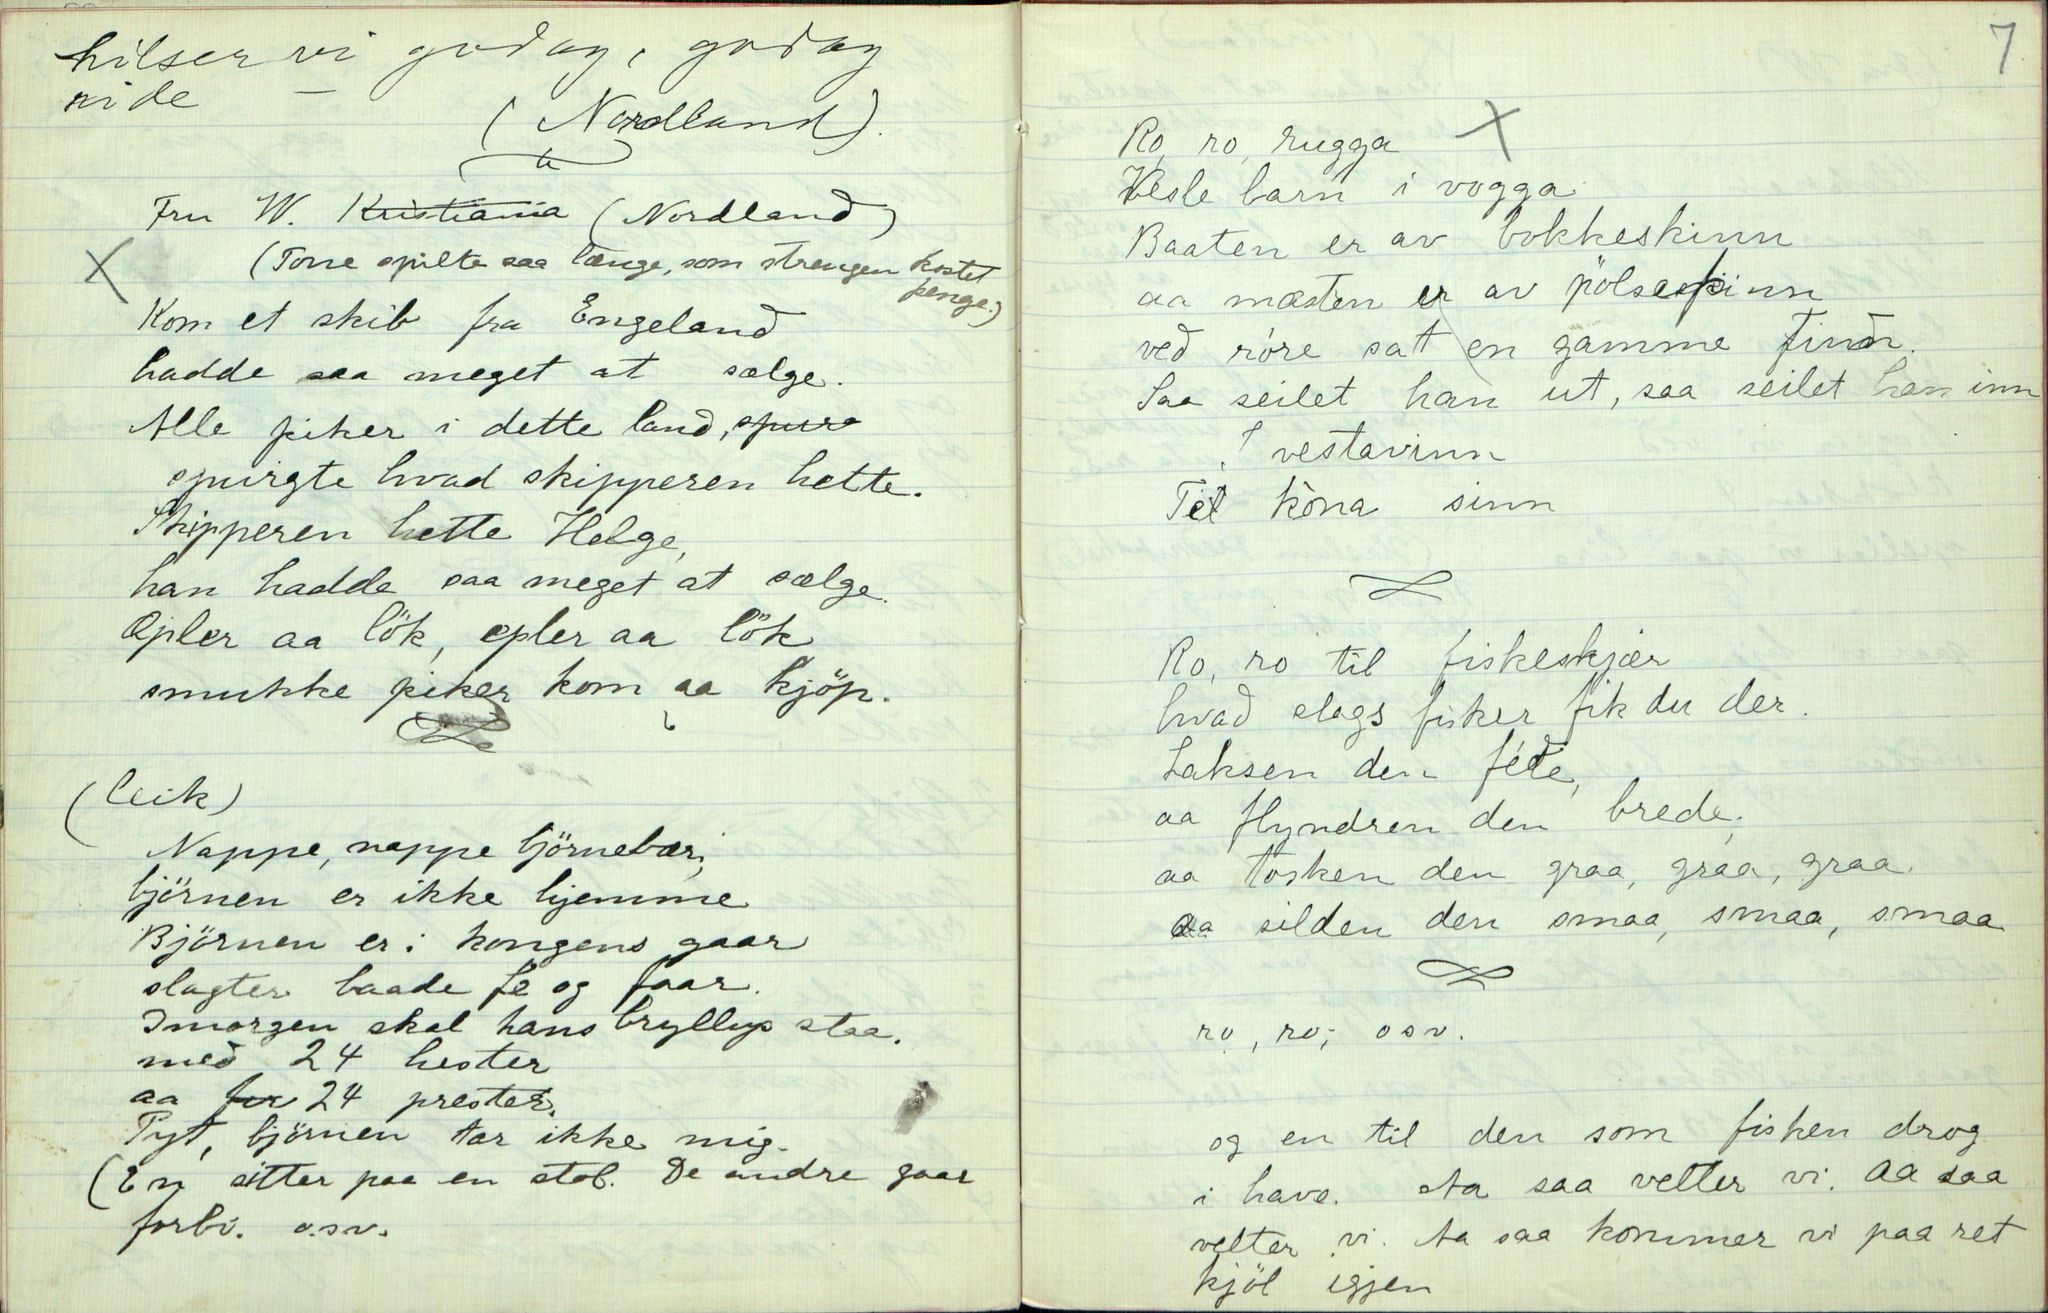 hilser vi godag, godag
ride —
(Nordland).
Fru W. Kristiania (Nordland)
(Tone spilte saa længe, som strengen kostet
penge.)
X
Kom et skib fra Engeland
hadde saa meget at sælge.
Alle piker i dette land, spurg
spurgte hvad skipperen hette.
Skipperen hette Helge,
han hadde saa meget at sælge.
Epler aa lök, epler aa lök
smukke piker kom aa kjöp.
(leik)
Nappe, nappe björnebær,
björnen er ikke hjemme
Björnen er i kongens gaar
slagter baade fe og faar.
Imorgen skal hans bryllup staa.
med 24 hester
aa for 24 prester.
Pyt, björnen tar ikke mig.
(En sitter paa en stol. De andre gaar
forbi. o.s.v.
7
Ro, ro, rugga X
Vesle barn i vogga
Baaten er av bokkeskinn
aa masten er av pölsepinn
ved röre sat en gamme finn.
Saa seilet han ut, saa seilet han inn
I vestavinn
Tel kona sinn
Ro, ro til fiskeskjær
hvad slags fisker fik du der.
Laksen den féde,
aa flyndren den brede,
aa tosken den graa, graa, graa.
aa silden den smaa, smaa, smaa
ro, ro; osv.
og en til den som fisken drog
i have. Aa saa velter vi. Aa saa
velter vi. Aa saa kommer vi paa ret
kjöl igjen